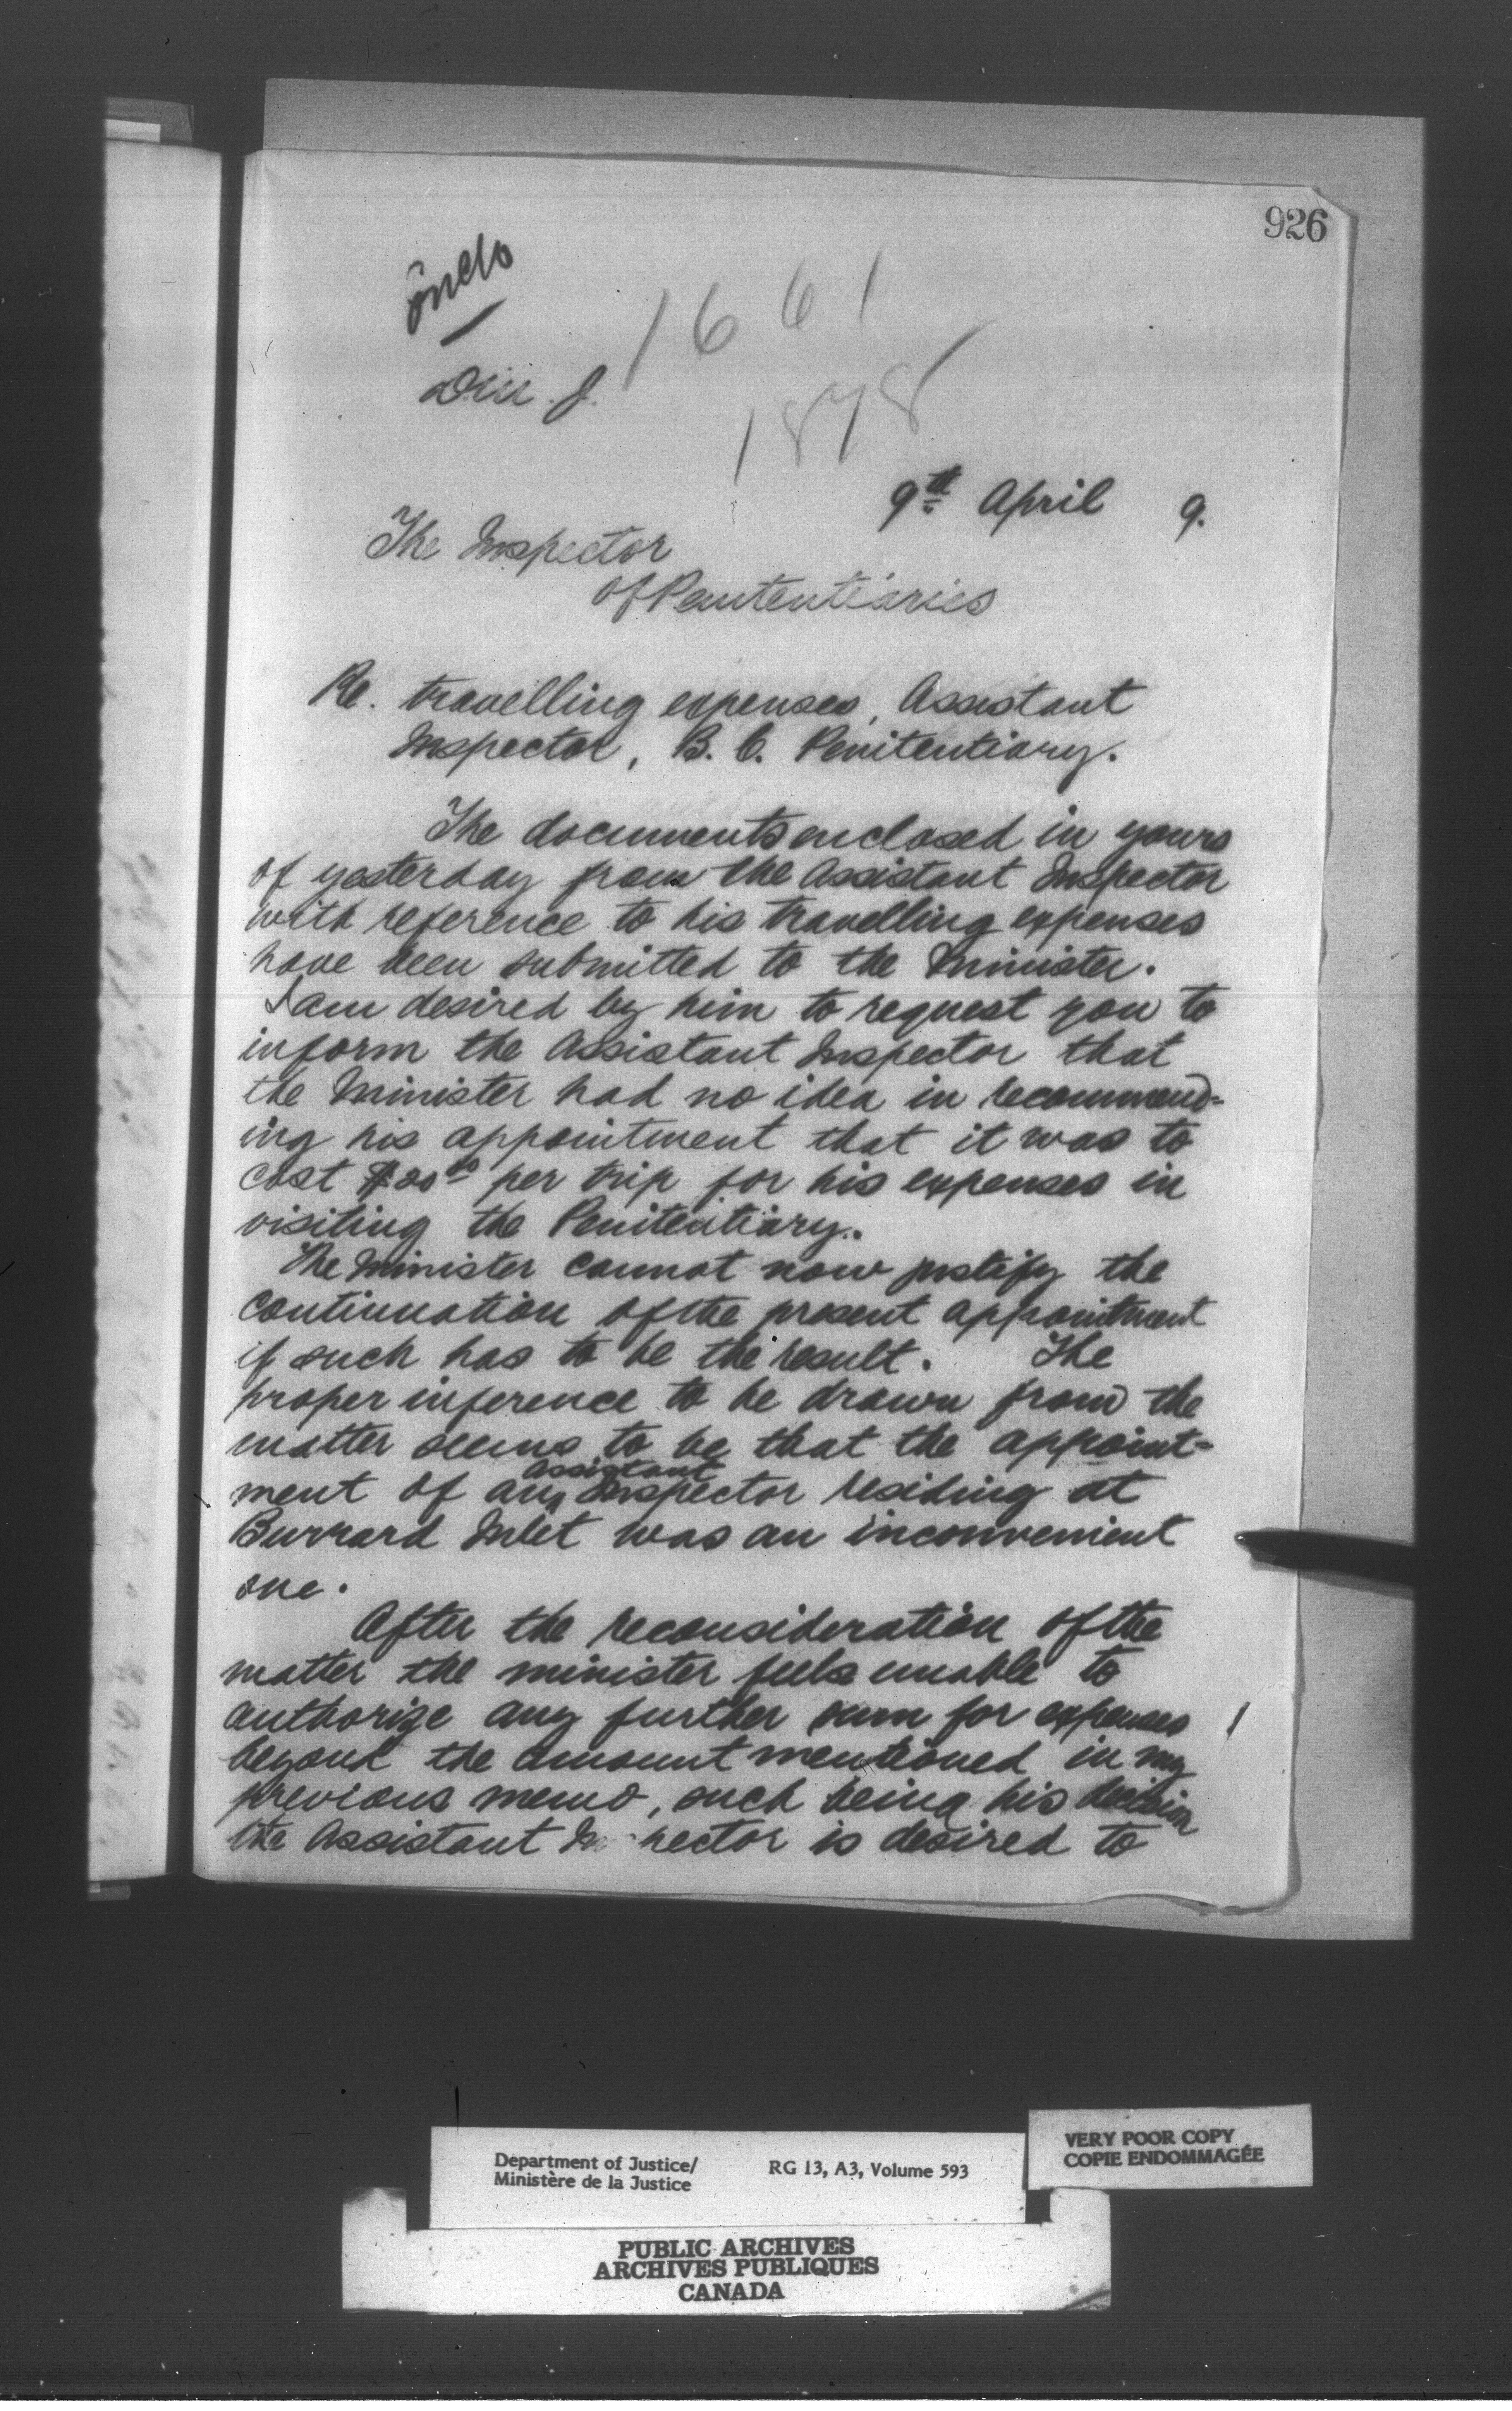 926
Encls
1661
1878
9th April 9.
The Inspector
of Penitentiaries
Re. travelling expenses, Assistant
Inspector, B. C. Penitentiary.
The documents enclosed in yours
of yesterday from the Assistant Inspector
with reference to his travelling expenses
have been submitted to the Minister.
I am desired by him to request you to
inform the Assistant Inspector that
the Minister had no idea in recommend-
ing his appointment that it was to
cost per trip for his expenses in
visiting the Penitentiary.
The Minister cannot now justify the
continuation of the present appointment
if such has to be the result. The
proper inference to be drawn from the
matter seems to be that the appoint-
ment of any Assistant Inspector residing at
Burrard Inlet was an inconvenient
one.
After the reconsideration of the
matter the minister feels unable to
authorize any further sum for expenses
beyond the amount mentioned in my
previous memo, such being his decision
the Assistant Inspector is desired to
Department of Justice/
Ministère de la Justice
RG 13, A3, Volume 593
VERY POOR COPY
COPIE ENDOMMAGÉE
PUBLIC ARCHIVES
ARCHIVES PUBLIQUES
CANADA